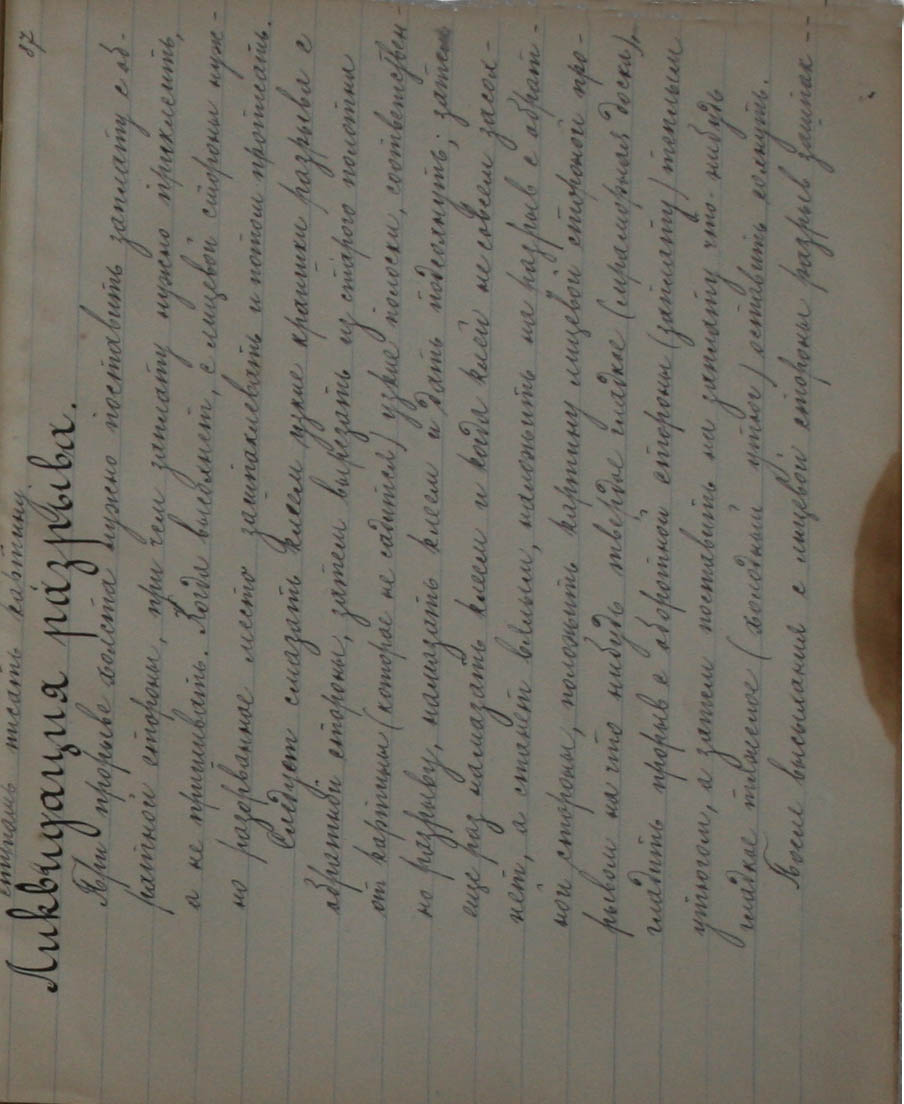 87
ступать писать картину
Ликвидация разрыва.
При прорыве холста нужно поставить заплату с об-
ратной стороны, при чем заплату нужно приклеить,
а не пришивать. Когда высохнет, с лицевой стороны нуж-
но разорванное место зашпаклевать и потом прописать.
Следует смазать клеем узкие крайки разрыва с
обратной стороны, затем вырезать из старого полотна
от картины (которое не садится) узкие полоски, соответствен-
но разрыву, намазать клеем и дать подсохнуть, затем
еще раз намазать клеем и когда клей не совсем засох-
нет, а станет вялым, наложить на разрыв с обрат-
ной стороны, положить картину лицевой стороной про-
рывом на что нибудь твердое гладкое (мраморная доска),
гладить прорыв с оборотной стороны (заплату) теплым
утюгом, а затем поставить на заплату что-нибудь
гладкое тяжелое (холодный утюг) оставить сохнуть.
После высыхания с лицевой стороны разрыв зашпак-